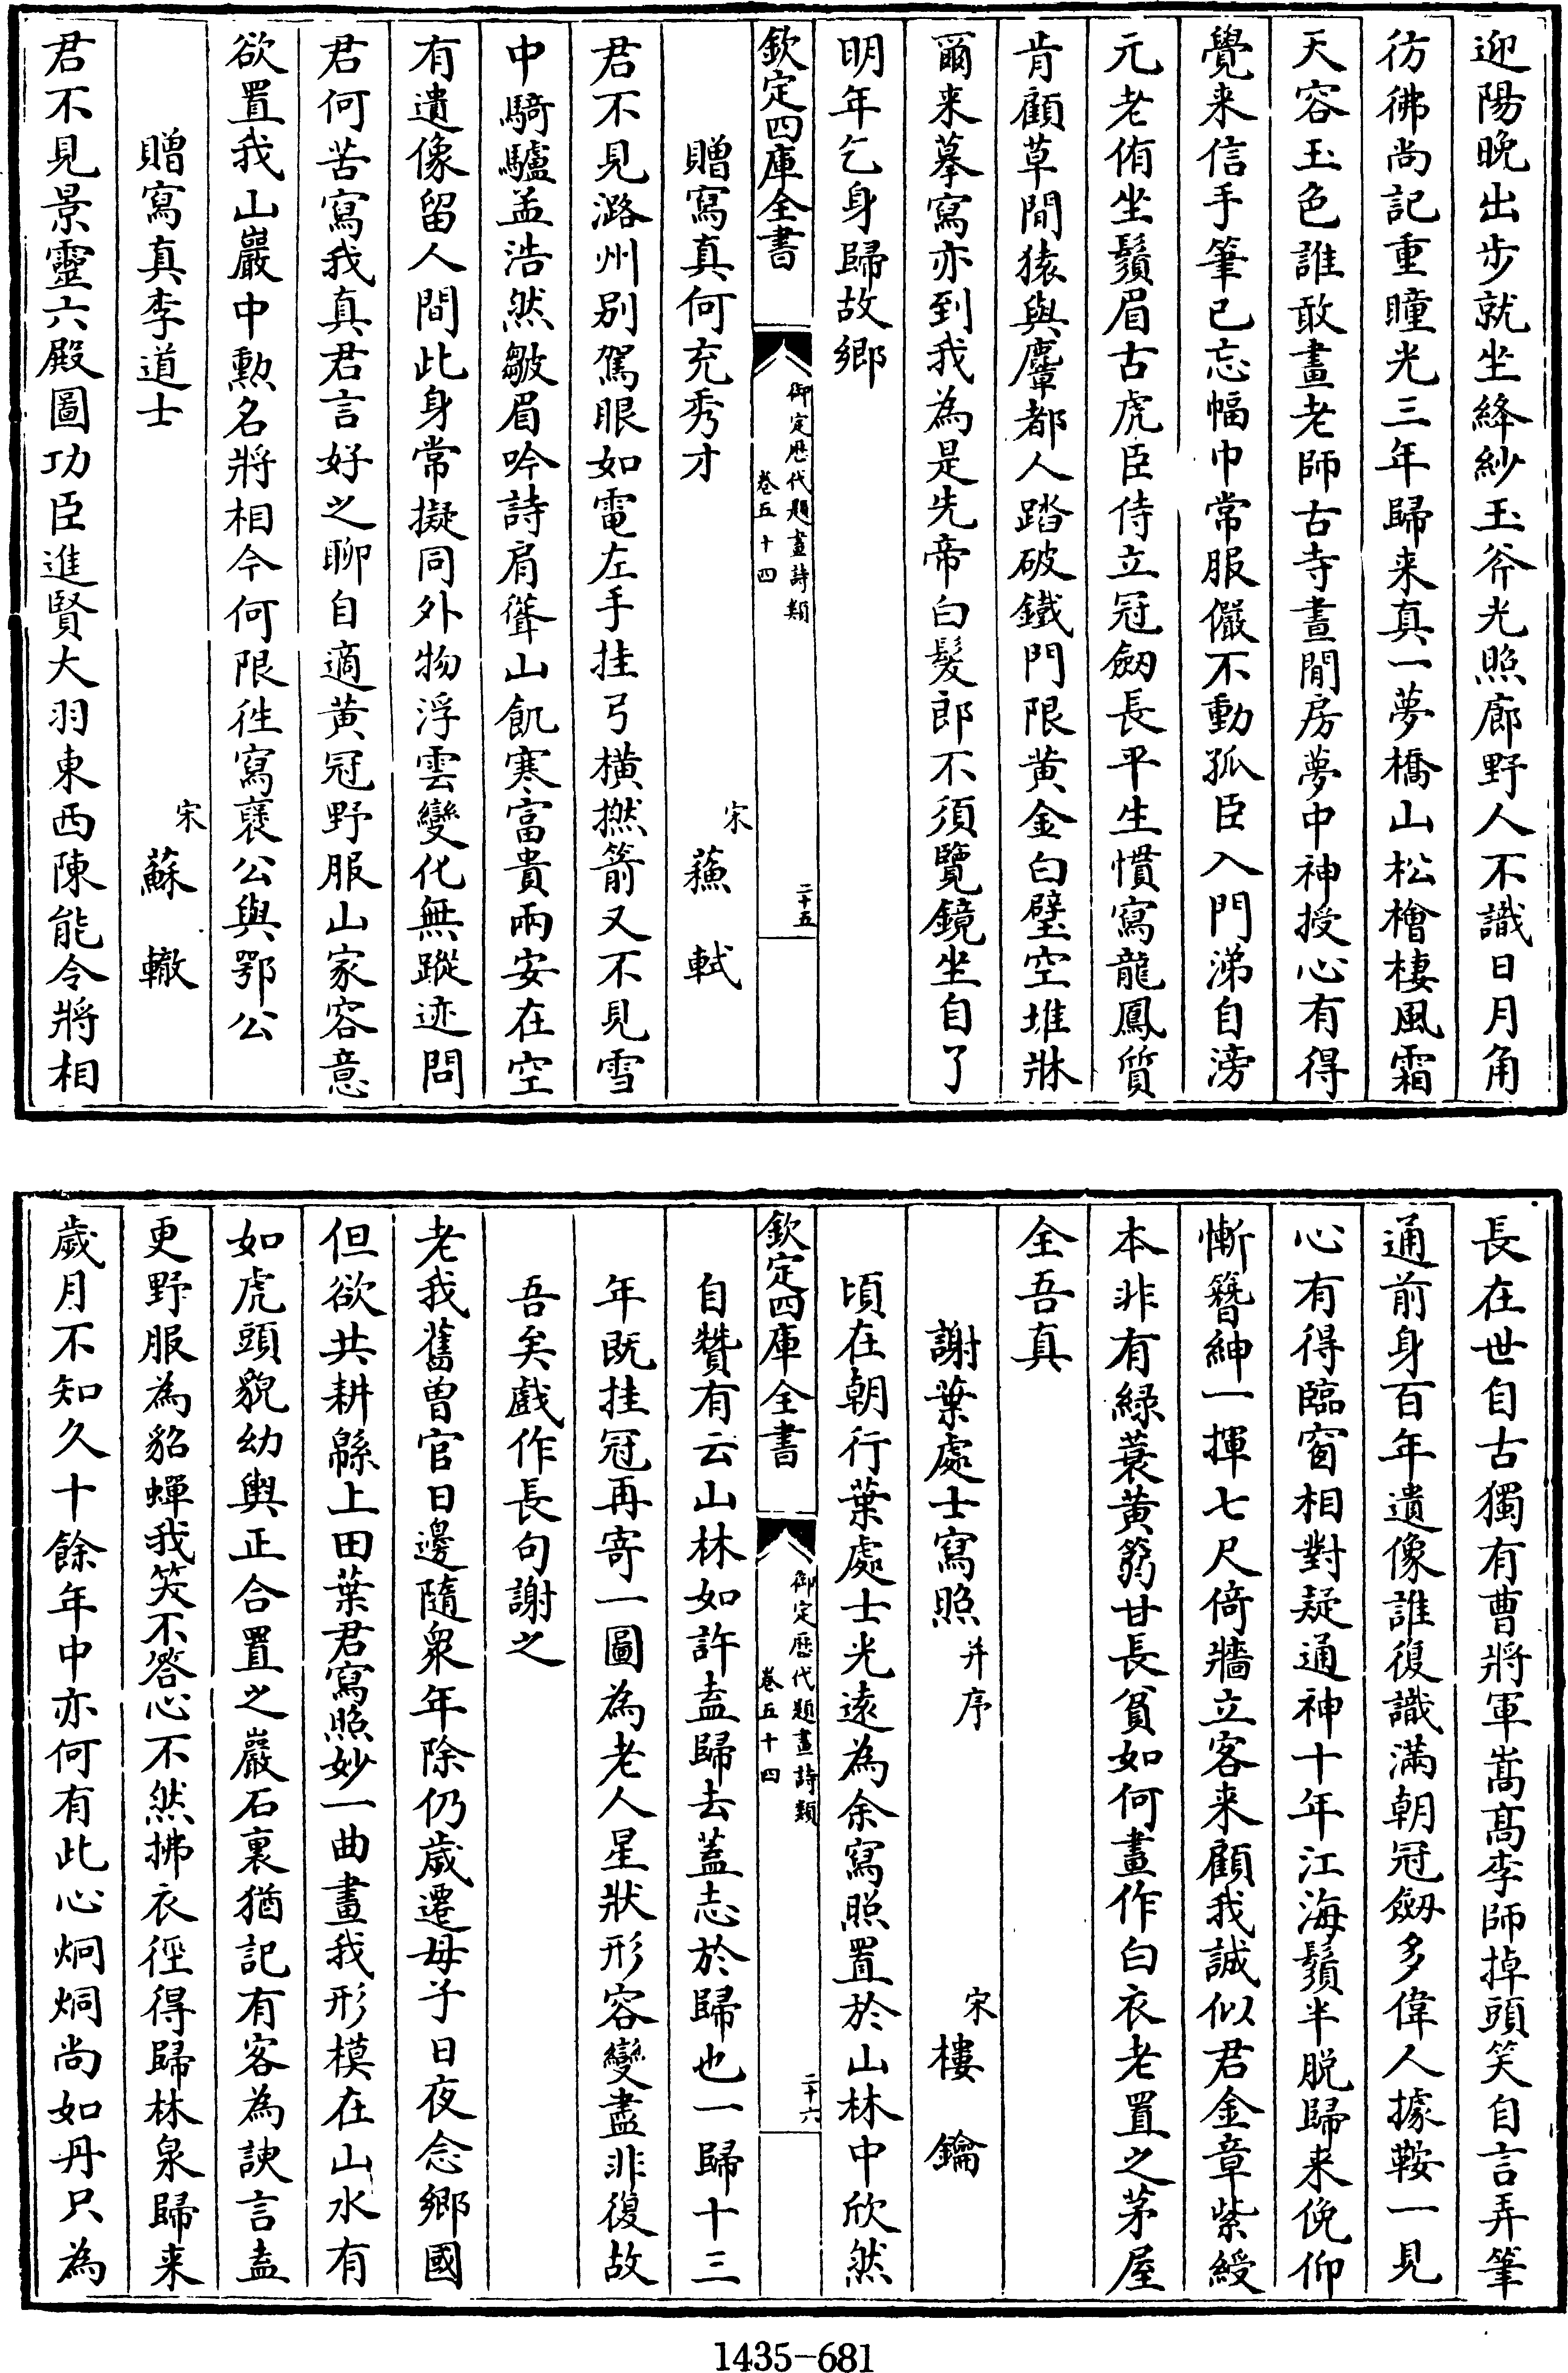 迎陽晚出步就坐絳紗玉斧光照廊野人不識日月角
彷彿尚記重瞳光三年歸来真一夢橋山松檜棲風霜
天容玉色誰敢畫老師古寺晝閒房夢中神授心有得
覺来信手筆已忘幅巾常服儼不動孤臣入門涕自滂
元老侑坐鬚眉古虎臣侍立冠劒長平生慣寫龍鳳質
肯顧草間猿與麞都人踏破鐵門限黄金白璧空堆牀
爾来摹寫亦到我為是先帝白髮郎不須覽鏡坐自了
明年乞身歸故鄉
欽定四庫全書
御定歴代題畫詩類
卷五十四
二十五
贈寫真何充秀才
宋 蘓軾
君不見潞州别駕眼如電左手挂弓橫撚箭又不見雪
中騎驢孟浩然皺眉吟詩肩聳山飢寒富貴兩安在空
有遺像留人間此身常擬同外物浮雲變化無蹤迹問
君何苦寫我真君言好之聊自適黄冠野服山家容意
欲置我山巖中勲名將相今何限徃寫褒公與鄂公
贈寫真李道士
宋 蘇轍
君不見景靈六殿圖功臣進賢大羽東西陳能令將相
長在世自古獨有曹將軍嵩髙李師掉頭笑自言弄筆
通前身百年遺像誰復識滿朝冠劒多偉人據鞍一見
心有得臨窗相對疑通神十年江海鬚半脱歸来俛仰
慚簪紳一揮七尺倚牆立客来顧我誠似君金章紫綬
本非有緑蓑黄篛甘長貧如何畫作白衣老置之茅屋
全吾真
謝葉處士寫照 并序
宋 樓鑰
頃在朝行葉處士光逺為余寫照置於山林中欣然
欽定四庫全書
御定歴代題畫詩類
卷五十四
二十六
自贊有云山林如許盍歸去蓋志於歸也一歸十三
年既挂冠再寄一圖為老人星狀形容變盡非復故
吾矣戲作長句謝之
老我舊曽官日邊隨衆年除仍歲遷母子日夜念鄉國
但欲共耕緜上田葉君寫照妙一曲畫我形模在山水有
如虎頭貌幼輿正合置之巖石裏猶記有客為諛言盍
更野服為貂蟬我笑不答心不然拂衣徑得歸林泉歸来
歲月不知久十餘年中亦何有此心炯炯尚如丹只為
1435-681